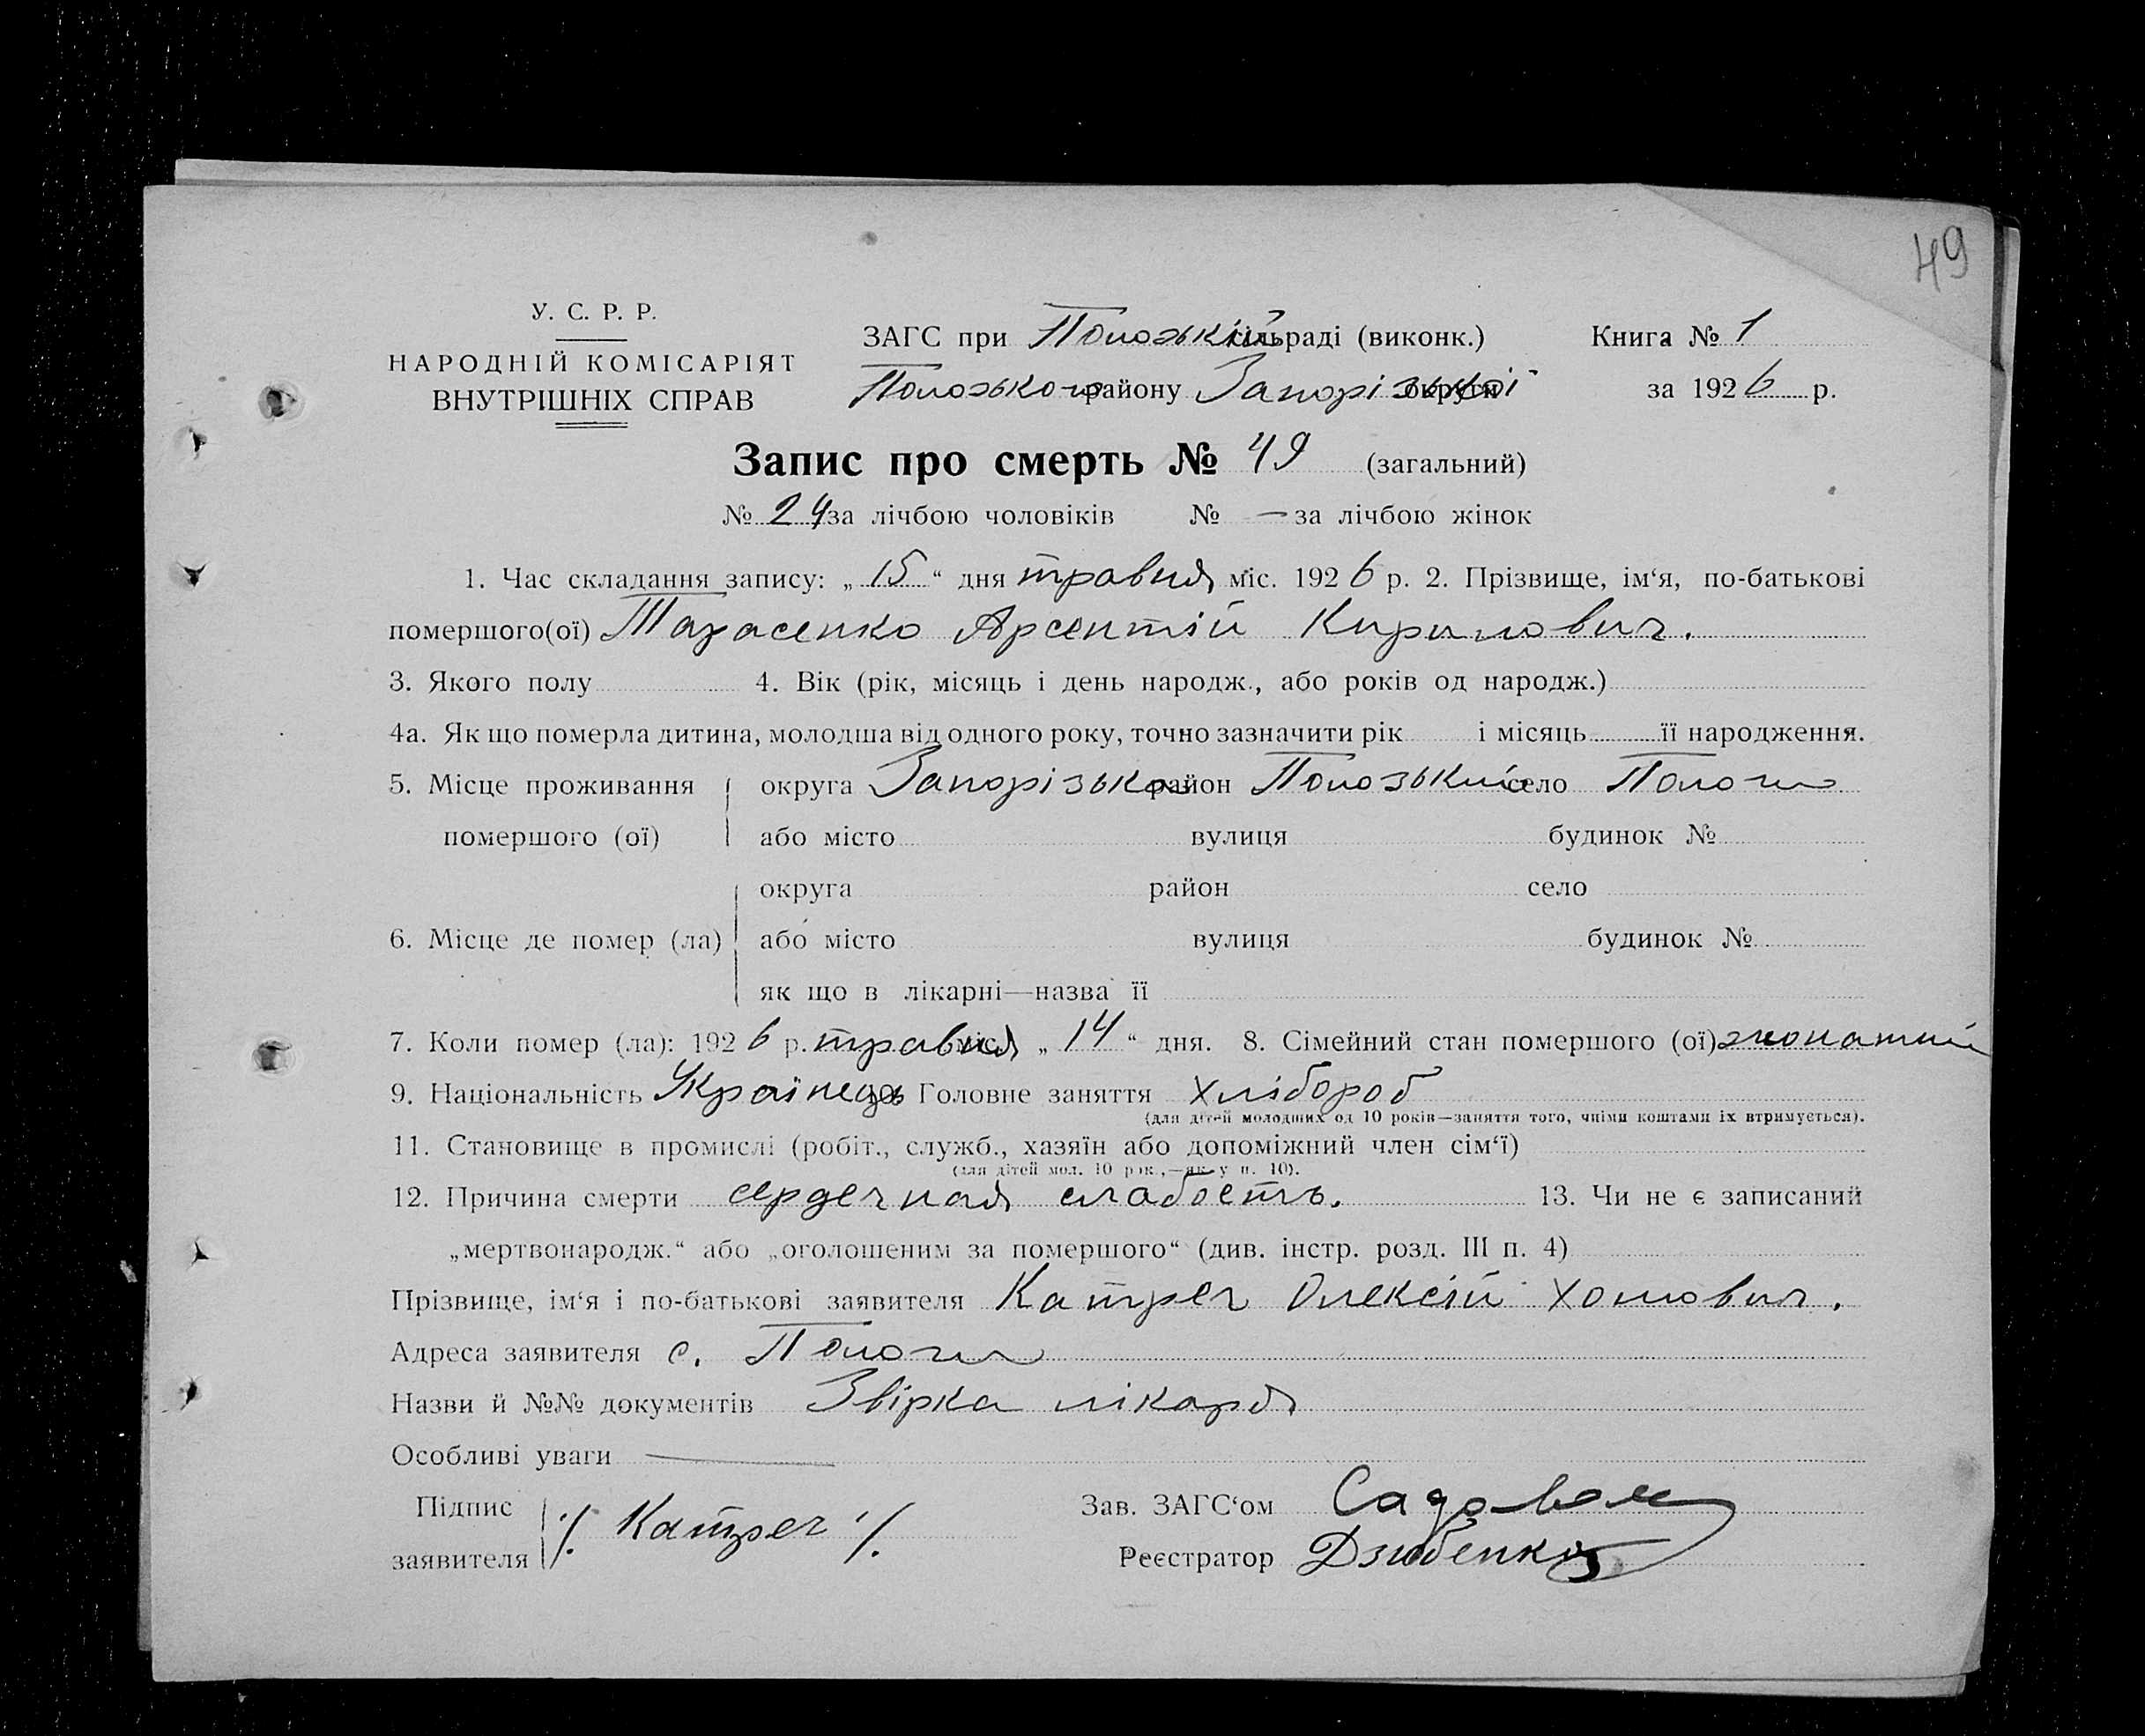 49
У. С. Р. Р.
НАРОДНІЙ КОМІСАРІЯТ
ВНУТРІШНІХ СПРАВ
ЗАГС при Полозькій сільраді (виконк.)
Полозького району Запорізької округи
Книга № 1
за 1926 р.
Запис про смерть № 49 (загальний)
№ 24 за лічбою чоловіків № — за лічбою жінок
1. Час складання запису: „15“ дня травня міс. 1926 р. 2. Прізвище, ім‘я, по-батькові
помершого(ої) Тарасенко Арсентій Кирилович.
3. Якого полу 4. Вік (рік, місяць і день народж., або років од народж.)
4а. Як що померла дитина, молодша від одного року, точно зазначити рік і місяць її народження.
5. Місце проживання округа Запорізька район Полозький село Пологи
помершого (ої) або місто вулиця будинок №
округа район село
6. Місце де помер (ла) або місто вулиця будинок №
як що в лікарні—назва її
7. Коли помер (ла): 1926 р. травня міс. „14“ дня. 8. Сімейний стан помершого (ої) жонатий
9. Національність Українець Головне заняття хлібороб
(для дітей молодших од 10 років—заняття того, чиїми коштами їх втримується).
11. Становище в промислі (робіт., служб., хазяїн або допоміжний член сім‘ї)
(для дітей мол. 10 рок.,—як у п. 10).
12. Причина смерти сердечная слабость. 13. Чи не є записаний
„мертвонародж.“ або „оголошеним за помершого“ (див. інстр. розд. III п. 4)
Прізвище, ім‘я і по-батькові заявителя Катрег Олексій Хомович.
Адреса заявителя с. Пологи
Назви й №№ документів Звірка лікаря
Особливі уваги —
Підпис заявителя /. Катрег /.
Зав. ЗАГС‘ом Садовем
Реєстратор Дзюбенко